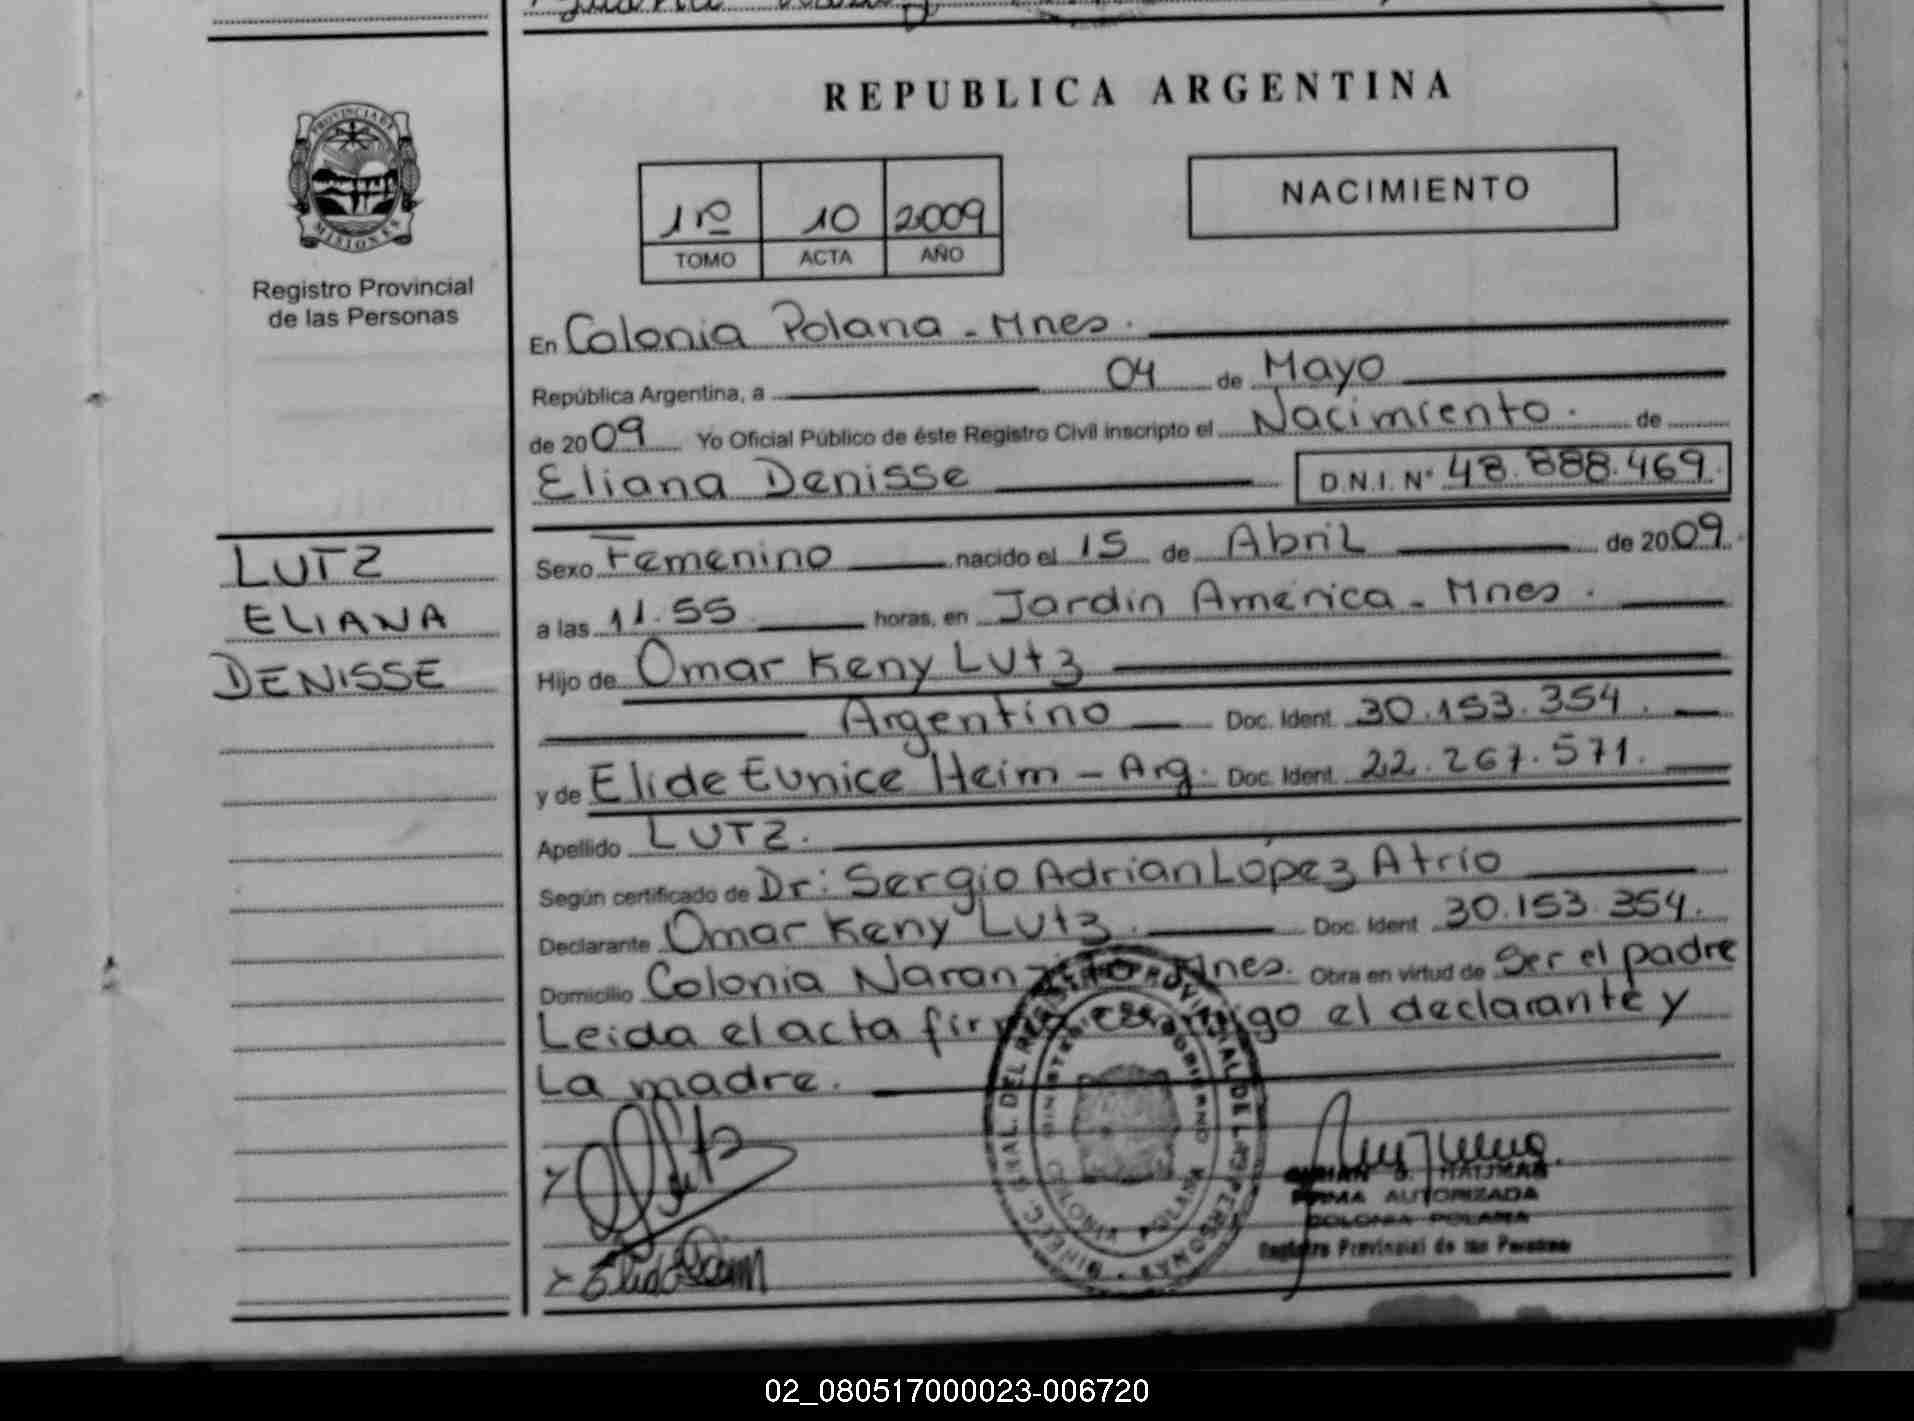 REPUBLICA ARGENTINA
PROVINCIA DE
MISIONES
Registro Provincial
de las Personas
1rº 10 2009
TOMO ACTA AÑO
NACIMIENTO
En Colonia Polana - Mnes.
República Argentina, a 04 de Mayo
de 2009 Yo Oficial Público de éste Registro Civil inscripto el Nacimiento. de
Eliana Denisse D.N.I. Nº 48.888.469.
LUTZ
ELIANA
DENISSE
Sexo Femenino nacido el 15 de Abril de 2009
a las 11.55 horas, en Jardin América - Mnes.
Hijo de Omar Keny Lutz
Argentino Doc. Ident. 30.153.354.
y de Elide Eunice Heim - Arg. Doc. Ident. 22.267.571.
Apellido LUTZ.
Según certificado de Dr: Sergio Adrian López Atrio
Declarante Omar Keny Lutz. Doc. Ident 30.153.354.
Domicilio Colonia Naranjito Mnes. Obra en virtud de Ser el padre
Leida el acta firma conmigo el declarante y
La madre.
REGISTRO PROVINCIAL DE LAS PERSONAS
MINISTERIO DE GOBIERNO
COLONIA POLANA
FIRMA AUTORIZADA
COLONIA POLANA
Registro Provincial de las Personas
02_080517000023-006720